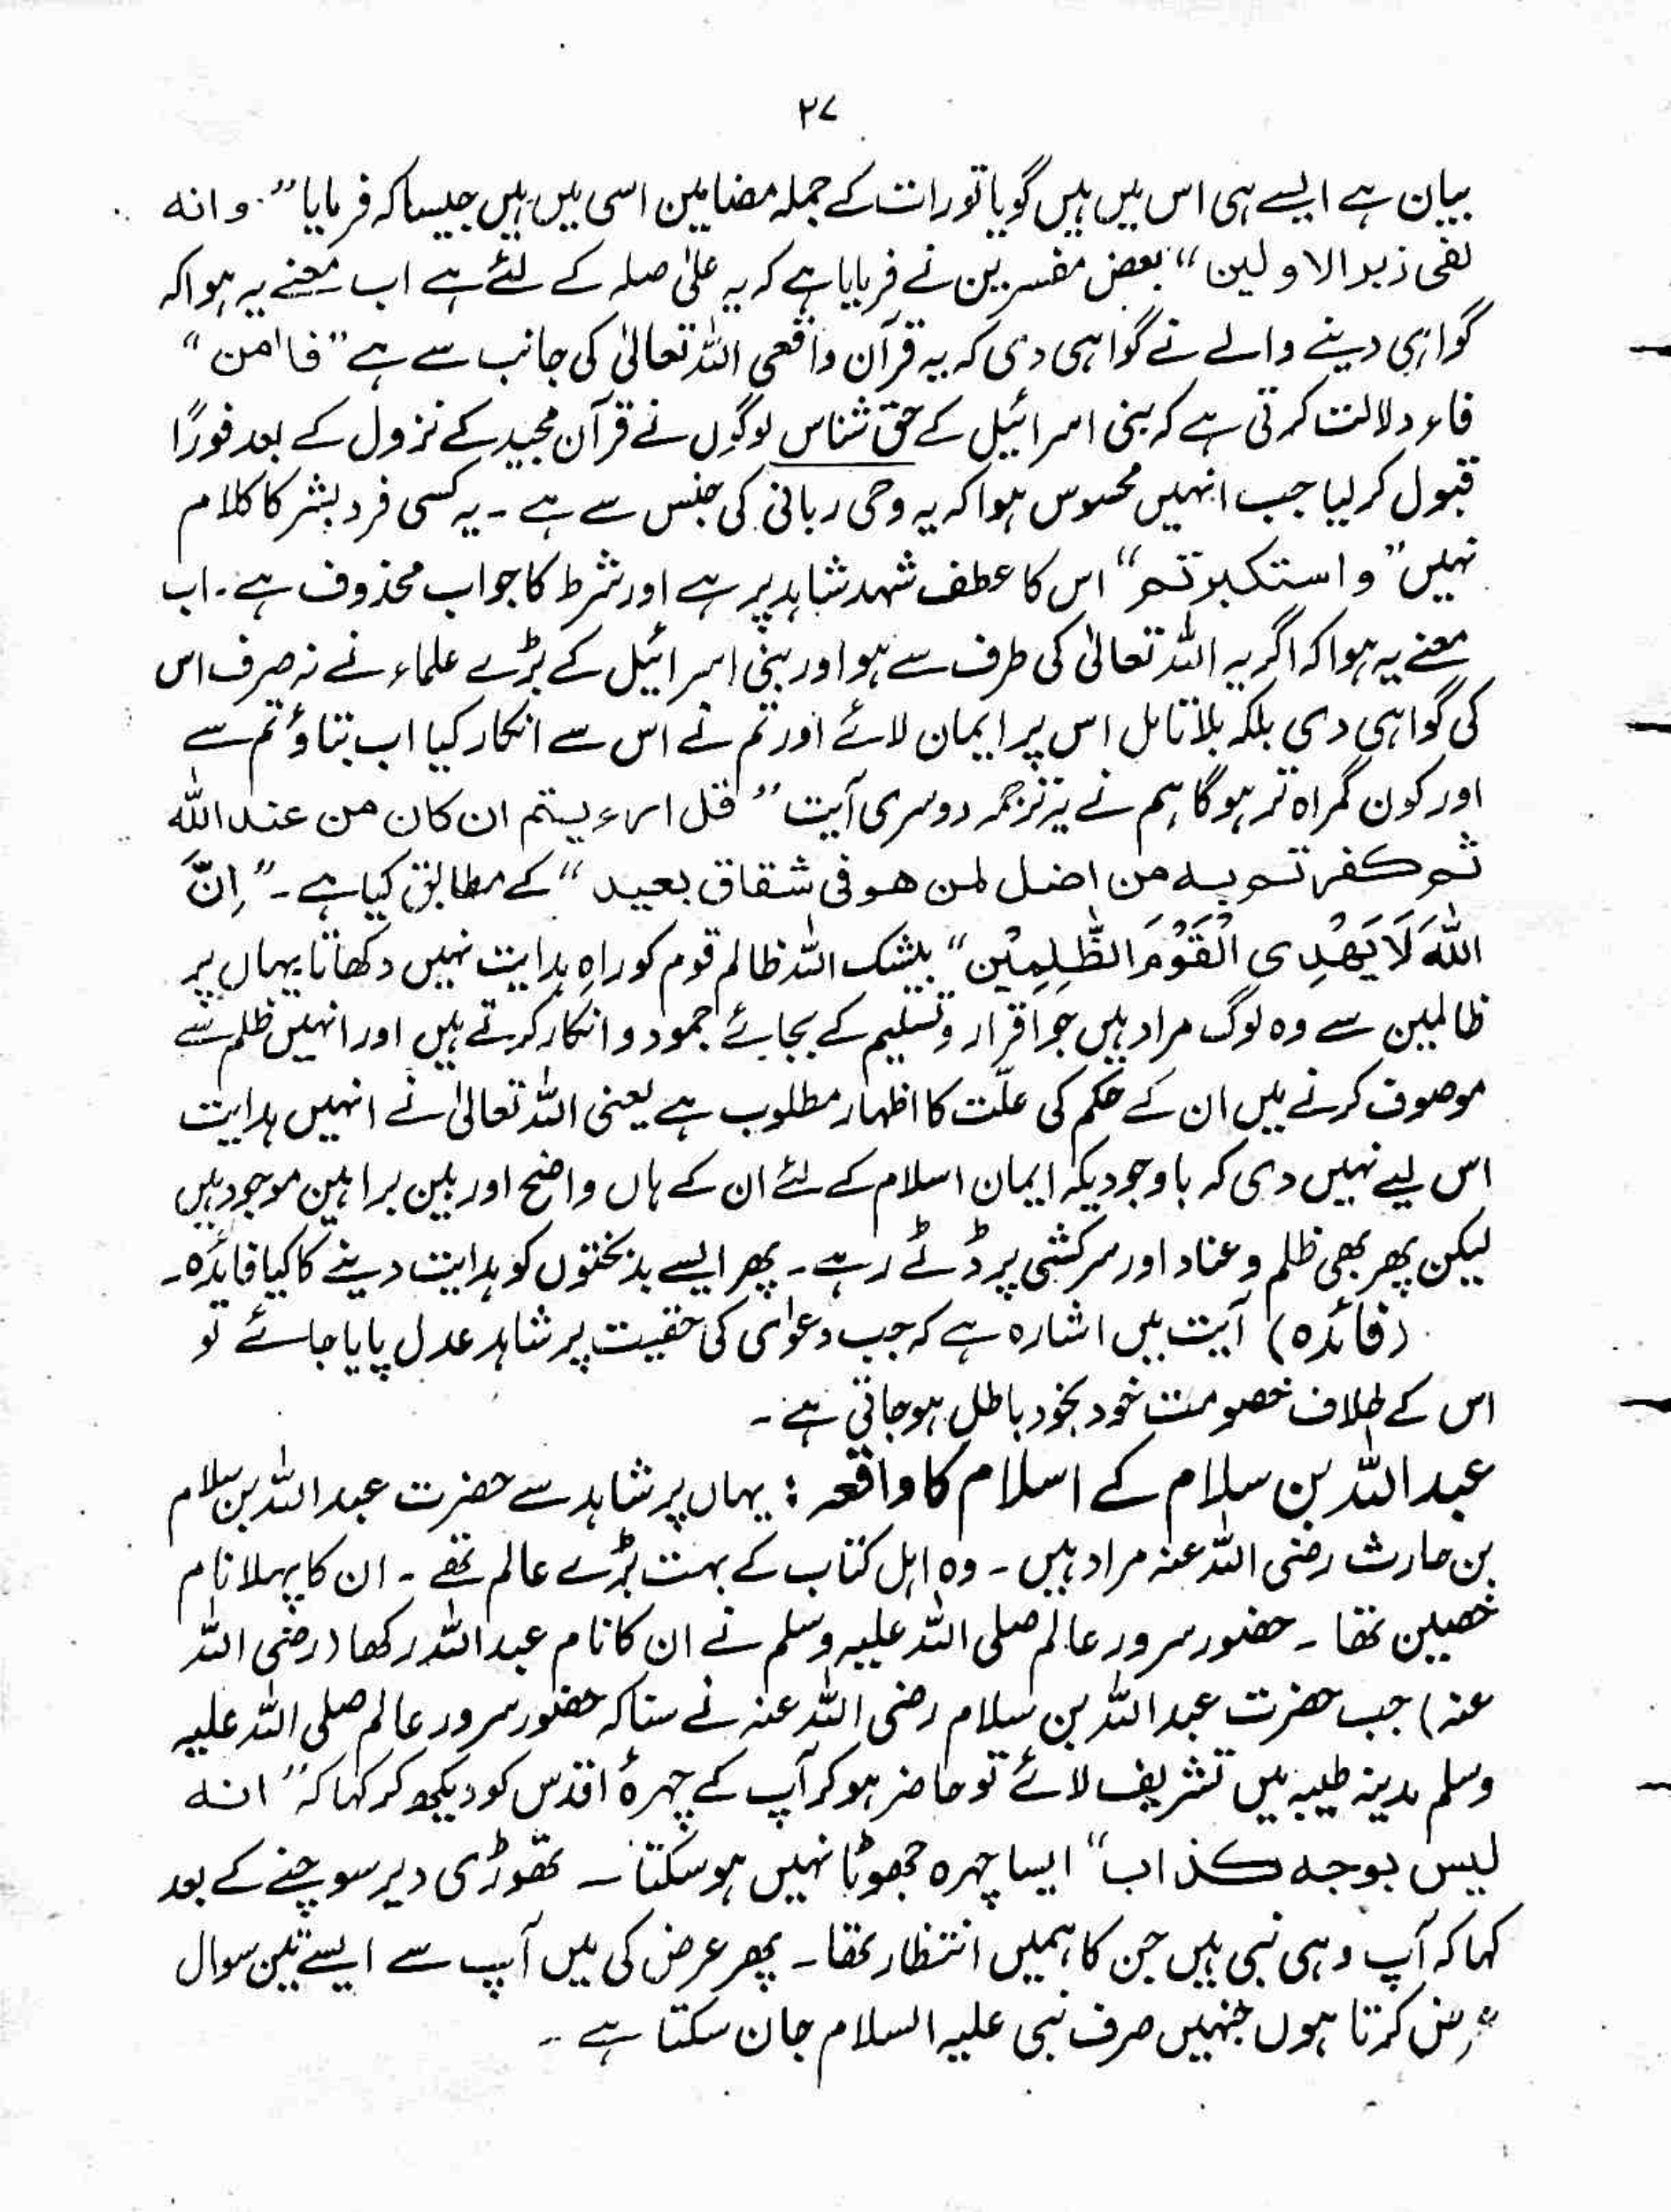 ۲۷
بیان ہے ایسے ہی اس میں ہیں گویا تورات کے جملہ مضامین اسی میں ہیں جیسا کہ فرمایا ” وانہ
لفی زبر الاولین “ بعض مفسرین نے فرمایا ہے کہ یہ علیٰ صلہ کے لئے ہے اب معنے یہ ہوا کہ
گواہی دینے والے نے گواہی دی کہ یہ قرآن واقعی اللہ تعالیٰ کی جانب سے ہے ” فاٰمن “
فاء دلالت کرتی ہے کہ بنی اسرائیل کے حق شناس لوگوں نے قرآن مجید کے نزول کے بعد فورًا
قبول کر لیا جب انہیں محسوس ہوا کہ یہ وحی ربانی کی جنس سے ہے ۔ یہ کسی فرد بشر کا کلام
نہیں ” واستکبرتم “ اس کا عطف شہد شاہد پر ہے اور شرط کا جواب محذوف ہے ۔ اب
معنے یہ ہوا کہ اگر یہ اللہ تعالیٰ کی طرف سے ہو اور بنی اسرائیل کے بڑے علماء نے نہ صرف اس
کی گواہی دی بلکہ بلا تامل اس پر ایمان لائے اور تم نے اس سے انکار کیا اب بتاؤ تم سے
اور کون گمراہ تر ہوگا ہم نے یہ ترجمہ دوسری آیت ” قل ارءیتم ان کان من عند اللہ
ثم کفرتم بہ من اضل لمن ھو فی شقاق بعید “ کے مطابق کیا ہے ۔ ” اِنَّ
اللہَ لَا یَھْدِی الْقَوْمَ الظّٰلِمِیْن “ بیشک اللہ ظالم قوم کو راہِ ہدایت نہیں دکھاتا یہاں پر
ظالمین سے وہ لوگ مراد ہیں جو اقرار و تسلیم کے بجائے جمود و انکار کرتے ہیں اور انہیں ظلم سے
موصوف کرنے میں ان کے حکم کی علّت کا اظہار مطلوب ہے یعنی اللہ تعالیٰ نے انہیں ہدایت
اس لیے نہیں دی کہ باوجودیکہ ایمان اسلام کے لئے ان کے ہاں واضح اور بین براہین موجود ہیں
لیکن پھر بھی ظلم و عناد اور سرکشی پر ڈٹے رہے ۔ پھر ایسے بدبختوں کو ہدایت دینے کا کیا فائدہ ۔
(فائدہ) آیت میں اشارہ ہے کہ جب دعوٰی کی حقیت پر شاہد عدل پایا جائے تو
اس کے خلاف خصومت خود بخود باطل ہو جاتی ہے ۔
عبد اللہ بن سلام کے اسلام کا واقعہ : یہاں پر شاہد سے حضرت عبد اللہ بن سلام
بن حارث رضی اللہ عنہ مراد ہیں ۔ وہ اہل کتاب کے بہت بڑے عالم تھے ۔ ان کا پہلا نام
خصین تھا ۔ حضور سرور عالم صلی اللہ علیہ وسلم نے ان کا نام عبد اللہ رکھا (رضی اللہ
عنہ) جب حضرت عبد اللہ بن سلام رضی اللہ عنہ نے سنا کہ حضور سرور عالم صلی اللہ علیہ
وسلم مدینہ طیبہ میں تشریف لائے تو حاضر ہو کر آپ کے چہرۂ اقدس کو دیکھ کر کہا کہ ” انہ
لیس بوجہ کذاب “ ایسا چہرہ جھوٹا نہیں ہو سکتا ۔ تھوڑی دیر سوچنے کے بعد
کہا کہ آپ وہی نبی ہیں جن کا ہمیں انتظار تھا ۔ پھر عرض کی میں آپ سے ایسے تین سوال
عرض کرتا ہوں جنہیں صرف نبی علیہ السلام جان سکتا ہے ۔